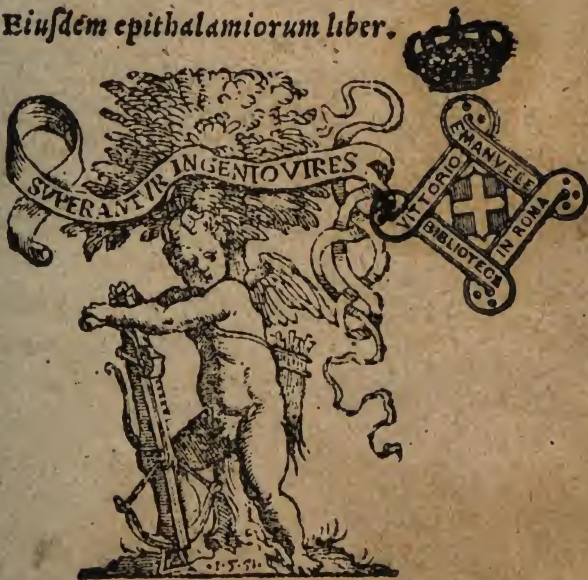 Eiuſdem epithalamiorum liber.
SVPERANTVR INGENIO VIRES
VITTORIO
EMANVELE
BIBLIOTECA
IN ROMA
.1.5.51.